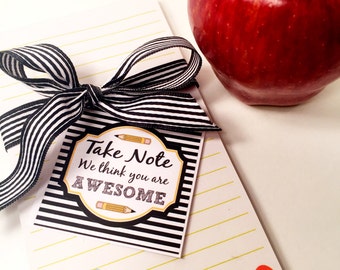 Take Note
We think you are
AWESOME